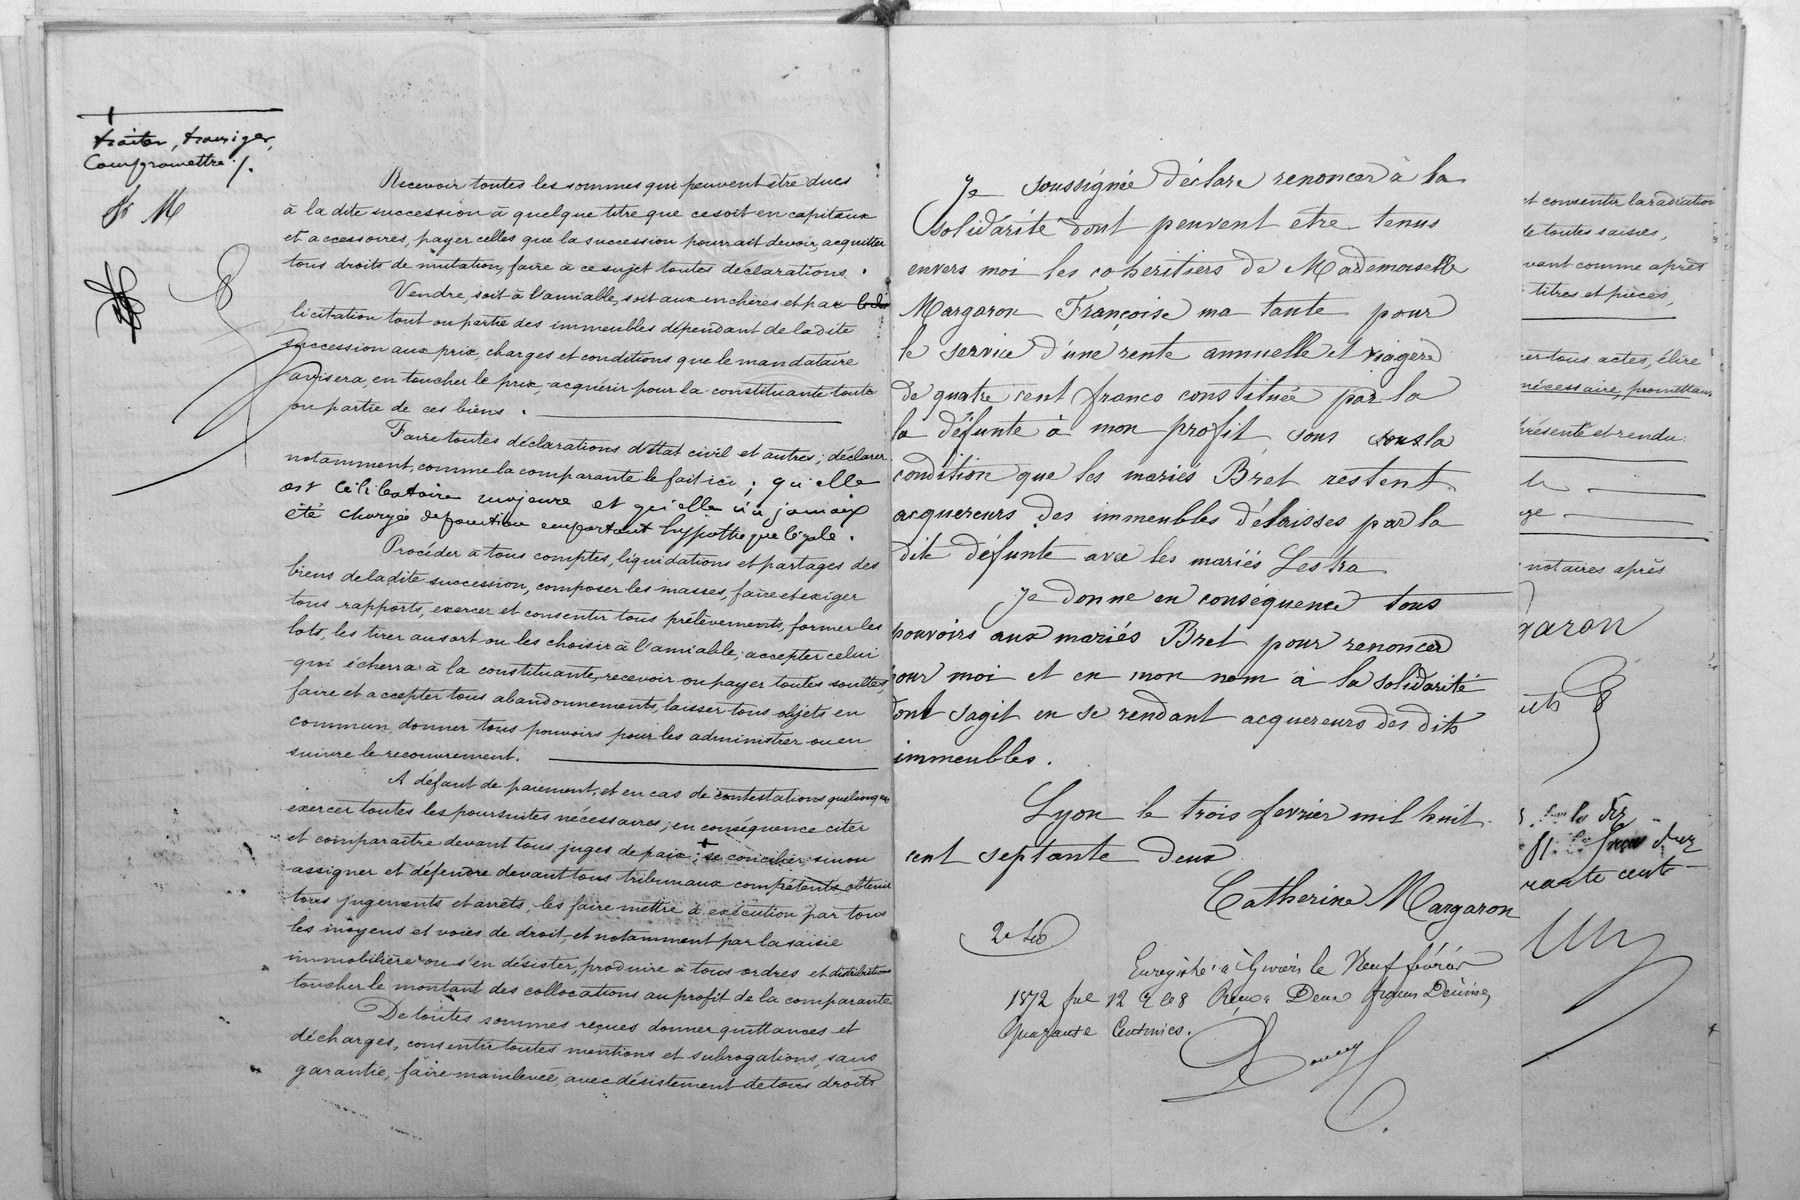 traiter, transiger,
Compromettre /.
M
Recevoir toutes les sommes qui peuvent être dues
à la dite succession à quelque titre que ce soit en capitaux
et accessoires, payer celles que la succession pourrait devoir, acquitter
tous droits de mutation, faire à ce sujet toutes déclarations.
Vendre, soit à l'amiable, soit aux enchères et par
licitation tout ou partie des immeubles dépendant de la dite
succession aux prix, charges et conditions que le mandataire
avisera, en toucher le prix, acquérir pour la constituante toute
ou partie de ces biens.
Faire toutes déclarations d'état civil et autres; déclarer
notamment, comme la comparante le fait ici; qu'elle
est célibataire majeure et qu'elle n'a jamais
été chargée de fonction emportant hypothèque légale.
Procéder à tous comptes, liquidations et partages des
biens de la dite succession, composer les masses, faire et exiger
tous rapports, exercer et consentir tous prélèvements, former les
lots, les tirer au sort ou les choisir à l'amiable; accepter celui
qui écherra à la constituante, recevoir ou payer toutes soultes,
faire et accepter tous abandonnements, laisser tous objets en
commun, donner tous pouvoirs pour les administrer ou en
suivre le recouvrement.
A défaut de paiement, et en cas de contestations quelconques
exercer toutes les poursuites nécessaires; en conséquence citer
et comparaître devant tous juges de paix; se concilier sinon
assigner et défendre devant tous tribunaux compétents, obtenir
tous jugements et arrêts, les faire mettre à exécution par tous
les moyens et voies de droit, et notamment par la saisie
immobilière ou s'en désister, produire à tous ordres et distributions
toucher le montant des collocations au profit de la comparante
De toutes sommes reçues donner quittances et
décharges, consentir toutes mentions et subrogations, sans
garantie, faire mainlevée, avec désistement de tous droits
Je soussignée déclare renoncer à la
solidarité dont peuvent etre tenus
envers moi les coheritiers de Mademoiselle
Margaron Françoise ma tante pour
le service d'une rente annuelle et viagère
de quatre cent francs constituée par la
la défunte à mon profit sous sous la
condition que les mariés Bret restent
acquereurs des immeubles délaisses par la
dite défunte avec les mariés Lestra
Je donne en conséquence tous
pouvoirs aux mariés Bret pour renoncer
pour moi et en mon nom à la solidarité
dont sagit en se rendant acquereurs des dits
immeubles.
Lyon le trois fevrier mil huit
cent septante deux
Catherine Margaron
Enregistré à Givors le Neuf février
1872 fol 12 Reçu Deux francs Décimes
Quarante Centimes.
et consentir la radiation
de toutes saisies,
vant comme après
titres et pièces,
er tous actes, élire
nécessaire, promettant
présenté et rendu
notaires après
garon
rante cent